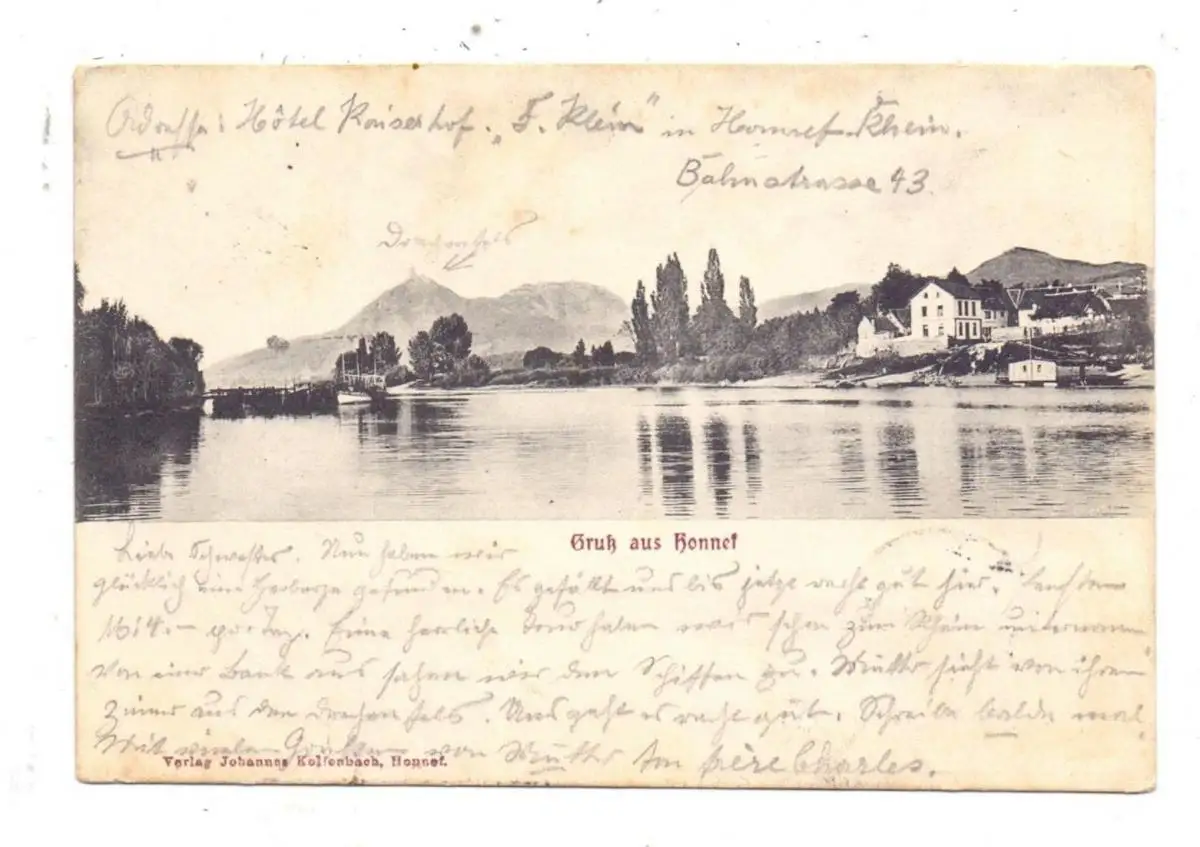 Adresse: Hôtel Kaiserhof. „F. Klein" in Honnef Rhein.
Bahnstrasse 43.
Drachenfels
Gruß aus Honnef
Liebe Schwester. Nun haben wir
glücklich eine Herberge gefunden. Es gefällt uns bis jetzt recht gut hier.
M 4.— pro Tag. Eine herrliche Tour haben wir schon zum Rhein unternommen
von einer Bank aus sahen wir den Schiffen zu. Mutter sieht von ihrem
Zimmer aus den Drachenfels. Uns geht es recht gut. Schreibe balde mal
Mit vielen Grüßen von Mutter frère Charles.
Verlag Johannes Kolfenbach, Honnef.